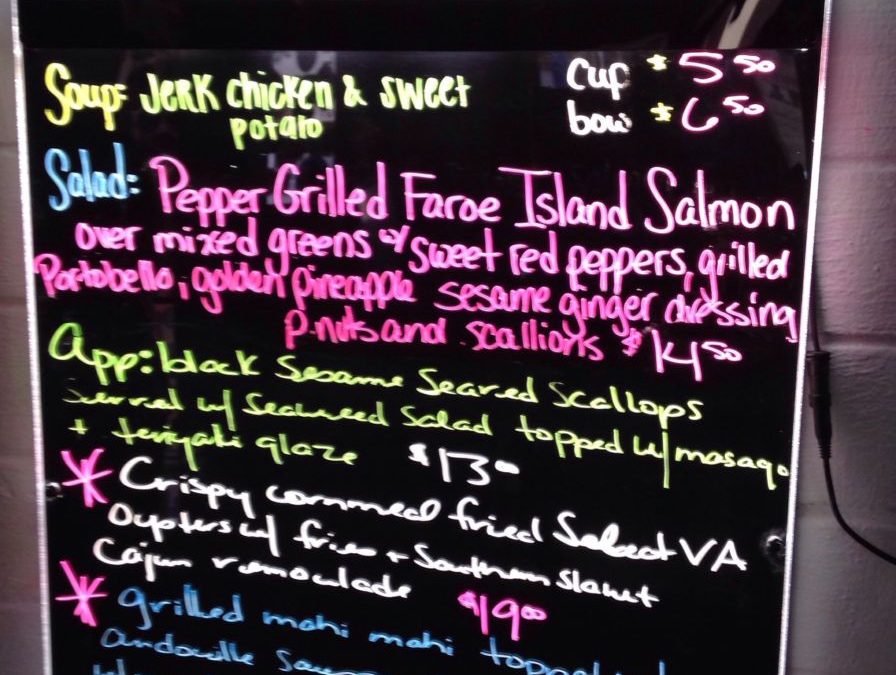 Soup: Jerk chicken & sweet potato
cup $5.50
bowl $6.50
Salad: Pepper Grilled Faroe Island Salmon
over mixed greens w/ sweet red peppers, grilled
Portobello, golden pineapple sesame ginger dressing
p.nuts and scallions $14.50
App: black Sesame Seared Scallops
Served w/ Seaweed Salad topped w/ masago
+ teriyaki glaze $13.00
* Crispy cornmeal fried Select VA
Oysters w/ fries + Southern Slaw
Cajun remoulade $19.00
* grilled mahi mahi topped
andouille